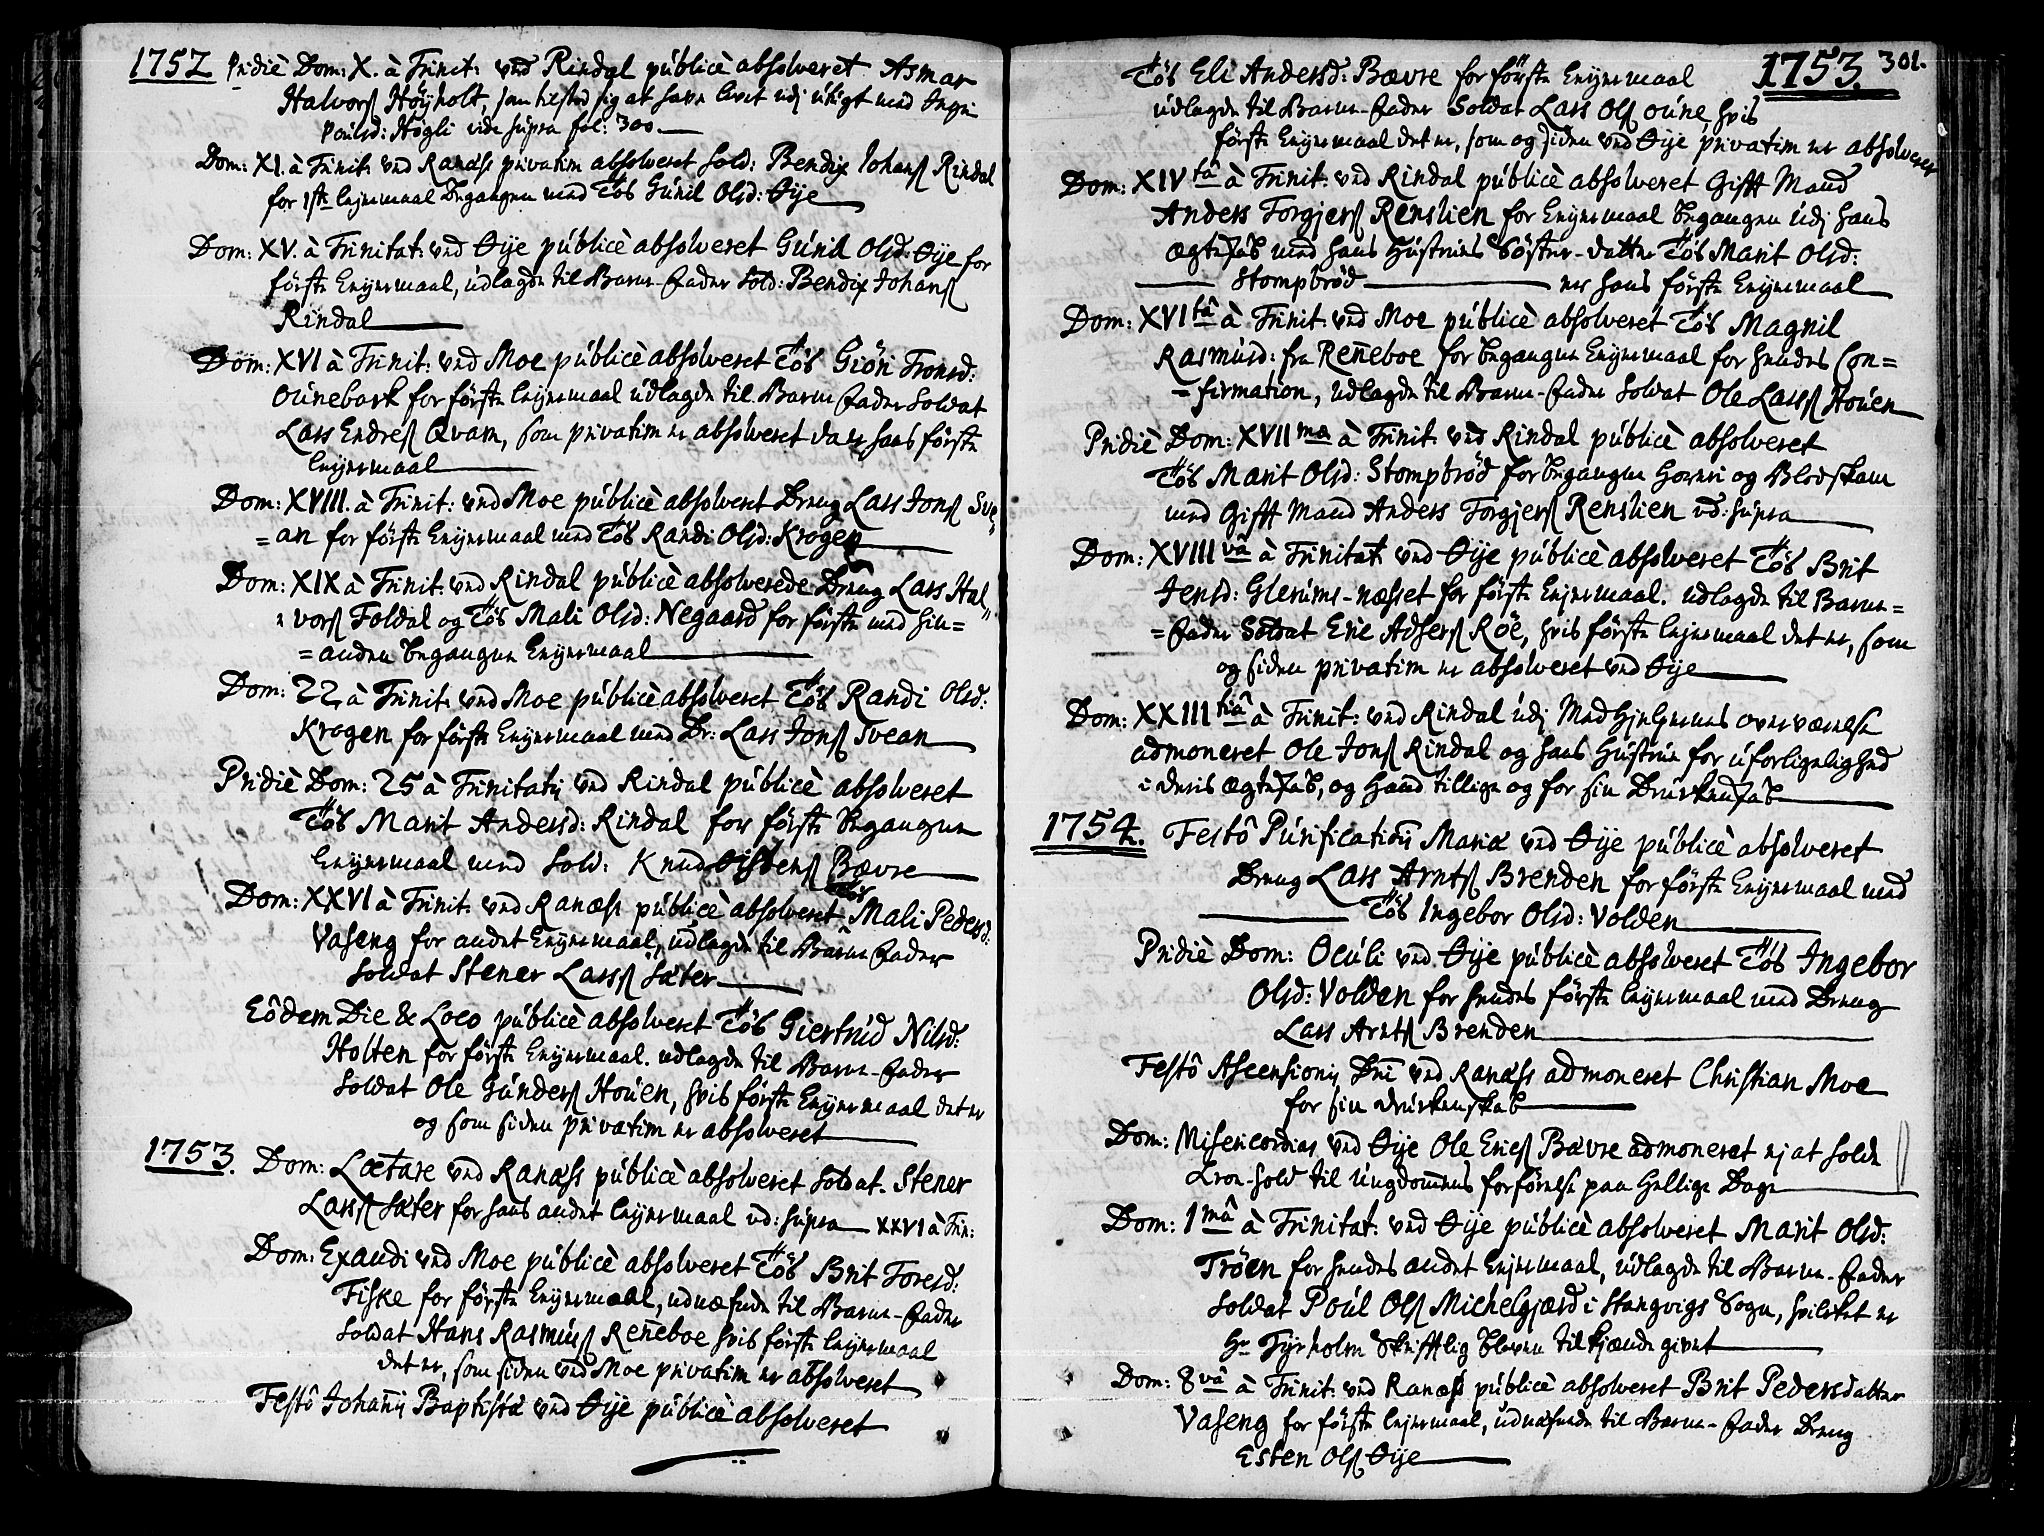 1752 Pridiè Dom: X. à Trinit: ved Rindal públicè absolveret Asmar
Halvorsß Höyholt, som tilstod sig at have levet udj utugt med Ingri
Poulsd: Högli vide súpra fol: 300.
Dom: XI. à Trinit: ved Ranæss privatim absolveret Sold: Bendix Johansß Rindal
for 1ste Leyermaal begangen med Töß Gúnil Olsd: Öye
Dom: XV. à Trinitat: ved Öye públicè absolveret Gúnil Olsd: Öye for
förste Leyermaal, udlagde til Barne-Fader Sold: Bendix Johansß
Rindal
Dom: XVI à Trinit: ved Moe públicè absolveret Töß Giöri Tronsd:
Oúnebark for förste Leyermaal udlagde til Barne Fader Soldat
Lars Endresß Qvam, som privatim er absolveret da er hans förste
Leyermaal
Dom: XVIII. à Trinit: ved Moe públicè absolveret Dreng Lars Jonsß Sve=
=an for förste Leyermaal med Töß Randi Olsd: Krogen
Dom: XIX à Trinit: ved Rindal públicè absolverede Dreng Lars Hal=
=vorsß Foldal og Töß Mali Olsd: Negaard for förste med hin=
=anden begangne Leyermaal
Dom: 22 à Trinit: ved Moe públicè absolveret Töß Randi Olsd:
Krogen for förste Leyermaal med Dr: Lars Jonsß Svean
Pridiè Dom: 25 à Trinitatis ved Rindal públicè absolveret
Töß Marit Andersd: Rindal for förste begangne
Leyermaal med Sold: Knud Öistensß Bævre
Dom: XXVI à Trinit: ved Ranæss públicè absolveret Töß Mali Pedersd:
Vaseng for andet Leyermaal, udlagde til Barne Fader
Soldat Stener Larsß Sæter
Eôdem Die & Loco públicè absolveret Töß Giertrúd Nilsd:
Holten for förste Leyermaal. udlagde til Barne-Fader
Soldat Ole Gúndersß Hoúen, hvis förste Leyermaal det er
og som siden privatim er absolveret
1753. Dom: Lætare ved Ranæss públicè absolveret Soldat Stener
Larsß Sæter for hans andet Leyermaal vd: súpra XXVI à Trin:
Dom: Exaudi ved Moe públicè absolveret Töß Brit Toresd:
Fiske for förste Leyermaal, udnæfnde til Barne-Fader
Soldat Hans Rasmúsß Renneboe hvis förste Leyermaal
det er, som siden ved Moe privatim er absolveret
Festô Johannis Baptistæ ved Öye públicè absolveret
1753. 301.
Töß Eli Andersd: Bævre for förste Leyermaal
udlagde til Barne-Fader Soldat Lars Olsß Oúne, hvis
förste Leyermaal det er, som og siden ved Öye privatim er absolveret
Dom: XIVtâ à Trinit: ved Rindal públicè absolveret Gifft Mand
Anders Torgjersß Renslien for Leyermaal begangen udj hans
Ægteskab med hans Hústrúes Söster-datter Töß Marit Olsd:
Stompbröd er hans förste Leyermaal
Dom: XVItâ à Trinit: ved Moe públicè absolveret Töß Magnil
Rasmúsd: fra Renneboe for begangne Leyermaal for hendes Con=
=firmation, udlagde til Barne-Fader Soldat Ole Larsß Hoúen
Pridiè Dom: XVIIma à Trinit: ved Rindal públicè absolveret
Töß Marit Olsd: Stompbröd for begangen Horeri og Blodskam
med Gifft Mand Anders Torgjersß Renslien vd: súpra
Dom: XVIIIvâ à Trinitat: ved Öye públicè absolveret Töß Brit
Jensd: Glerúms-næsset for förste Leyermaal. udlagde til Barne=
=Fader Soldat Eric Adsersß Röe, hvis förste Leyermaal det er, som
og siden privatim er absolveret ved Öye
Dom: XXIIItiâ à Trinit: ved Rindal udj Medhjelpernes overværelse
admoneret Ole Jonsß Rindal og hans Hústrúe for uforligelighed
i deris Ægteskab, og hand tillige og for sin Drúckenskab
1754. Festô Púrificationis Mariæ ved Öye públicè absolveret
Dreng Lars Arntsß Brenden for förste Leyermaal med
Töß Ingebor Olsd: Volden
Pridiè Dom: Ocúli ved Öye públicè absolveret Töß Ingebor
Olsd: Volden for hendes förste Leyermaal med Dreng
Lars Arntsß Brenden
Festô Ascensionis Dni ved Ranæss admoneret Christian Moe
for sin drúckenskab
Dom: Misericordias ved Öye Ole Ericsß Bævre admoneret ej at holde
Kroe-hold til Ungdommens forförelse paa Hellige Dage
Dom: 1mâ à Trinitat: ved Öye públicè absolveret Marit Olsd:
Tröen for hendes andet Leyermaal, udlagde til Barne-Fader
Soldat Poúl Olsß Michelgjærd i Stangvigs Sogn, hvilcket er
Hr Tyrholm Skrifftlig bleven tilkjænde givet
Dom: 8vâ à Trinit: ved Ranæss públicè absolveret Brit Pedersdatter
Vaseng for förste Leyermaal, udnæfnde til Barne-Fader Dreng
Esten Olsß Öye